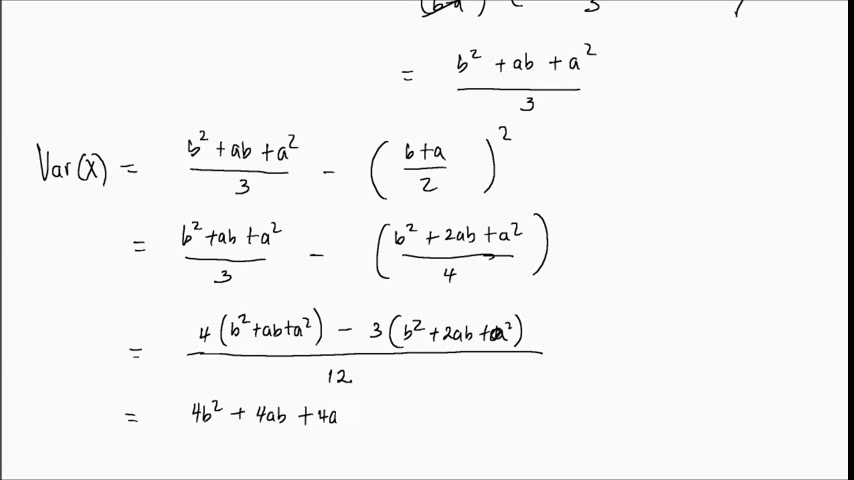 (b-a) ( 3
= b² + ab + a² / 3
Var(X) = b² + ab + a² / 3 - ( b+a / 2 )²
= b² + ab + a² / 3 - ( b² + 2ab + a² / 4 )
= 4(b² + ab + a²) - 3(b² + 2ab + a²) / 12
= 4b² + 4ab + 4a